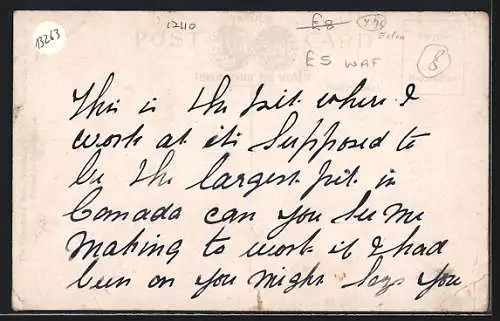 13263
12110
£8
£5 WAF
POST CARD
8
This is the pit where I
work at its supposed to
be the largest pit in
Canada can you see me
making to work if I had
been on you might say you